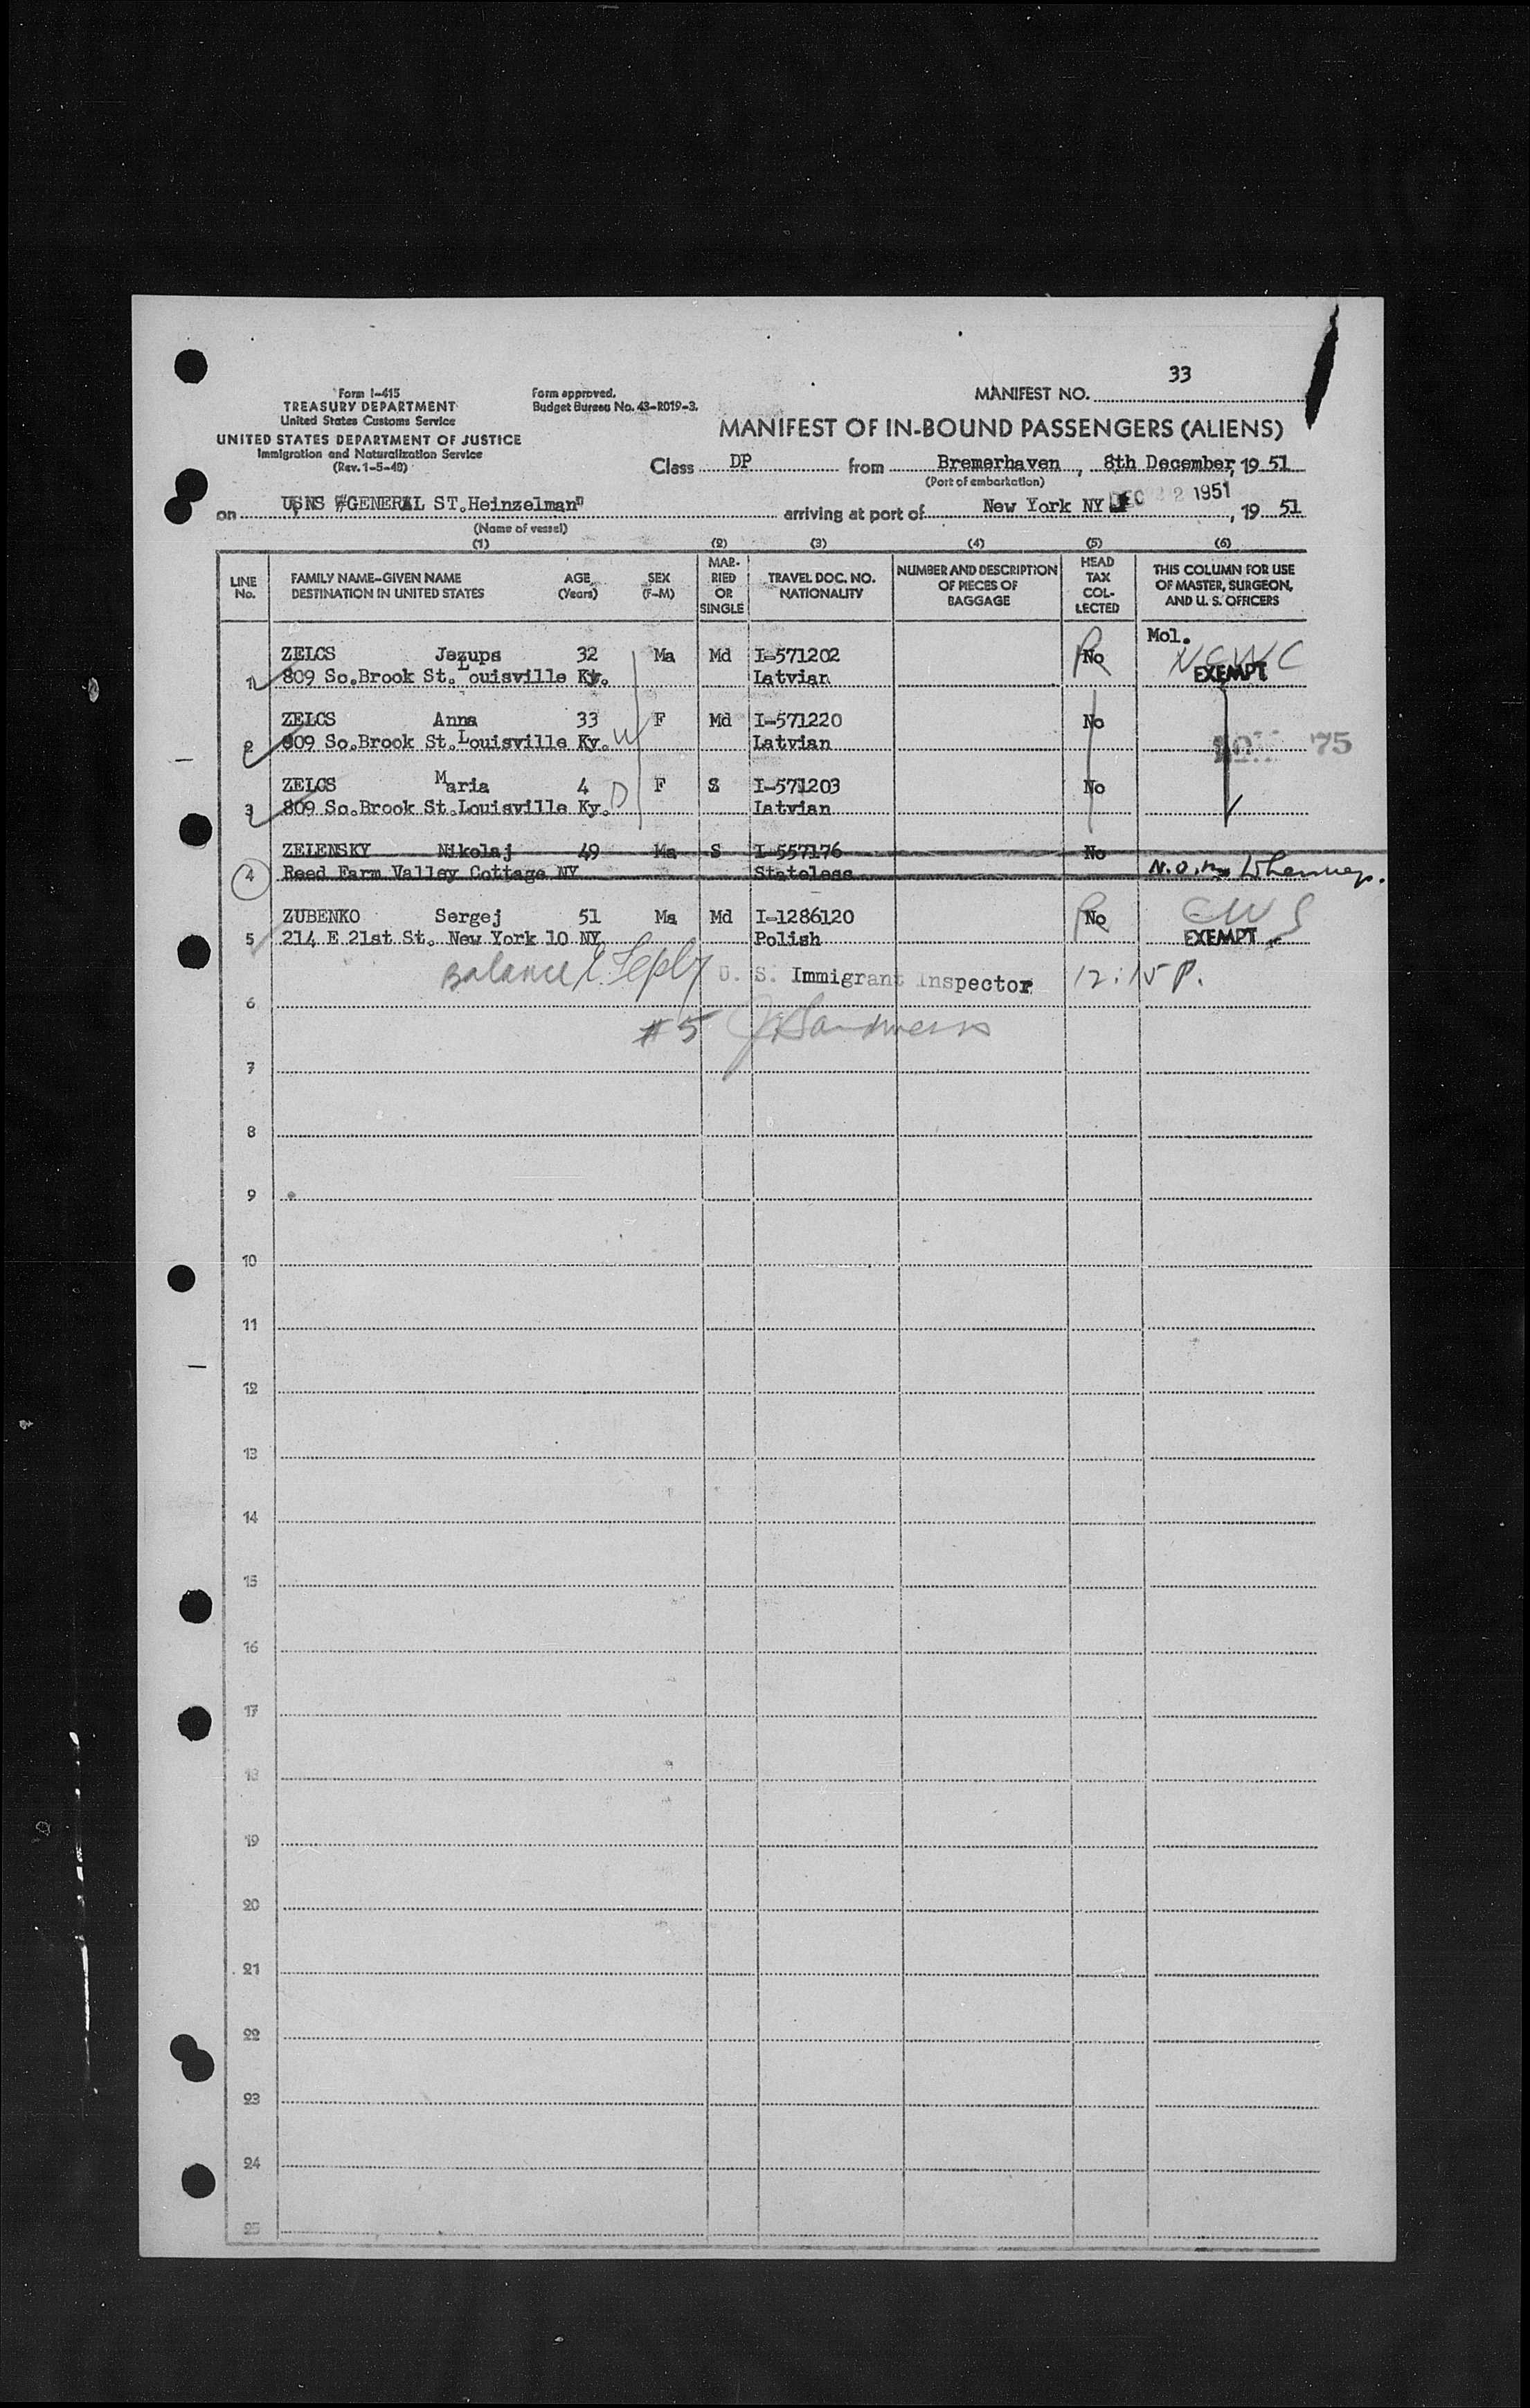 33
MANIFEST NO.
Form I-415
TREASURY DEPARTMENT
United States Customs Service
UNITED STATES DEPARTMENT OF JUSTICE
Immigration and Naturalization Service
(Rev. 1-5-48)
Form approved.
Budget Bureau No. 43-R019-3.
MANIFEST OF IN-BOUND PASSENGERS (ALIENS)
Class DP from Bremerhaven, 8th December, 19 51
(Port of embarkation)
on USNS "GENERAL ST.Heinzelman" arriving at port of New York NY DEC 22 1951, 19 51
(Name of vessel)
(1) (2) (3) (4) (5) (6)
LINE No. FAMILY NAME-GIVEN NAME DESTINATION IN UNITED STATES AGE (Years) SEX (F-M) MAR-RIED OR SINGLE TRAVEL DOC. NO. NATIONALITY NUMBER AND DESCRIPTION OF PIECES OF BAGGAGE HEAD TAX COL-LECTED THIS COLUMN FOR USE OF MASTER, SURGEON, AND U. S. OFFICERS
Mol.
ZELCS Jezups 32 Ma Md I-571202 No
1 809 So.Brook St.Louisville Ky. Latvian EXEMPT
ZELCS Anna 33 F Md I-571220 No
2 809 So.Brook St.Louisville Ky. W Latvian 75
ZELCS Maria 4 F S I-571203 No
3 809 So.Brook St.Louisville Ky. D Latvian
ZELENSKY Nikolaj 49 Ma S I-557176 No
4 Reed Farm Valley Cottage NY Stateless N.O.B.
ZUBENKO Sergej 51 Ma Md I-1286120 No
5 214 E 21st St. New York 10 NY Polish EXEMPT
Balance U. S. Immigrant Inspector 12:15 P.
6
#5
7
8
9
10
11
12
13
14
15
16
17
18
19
20
21
22
23
24
25